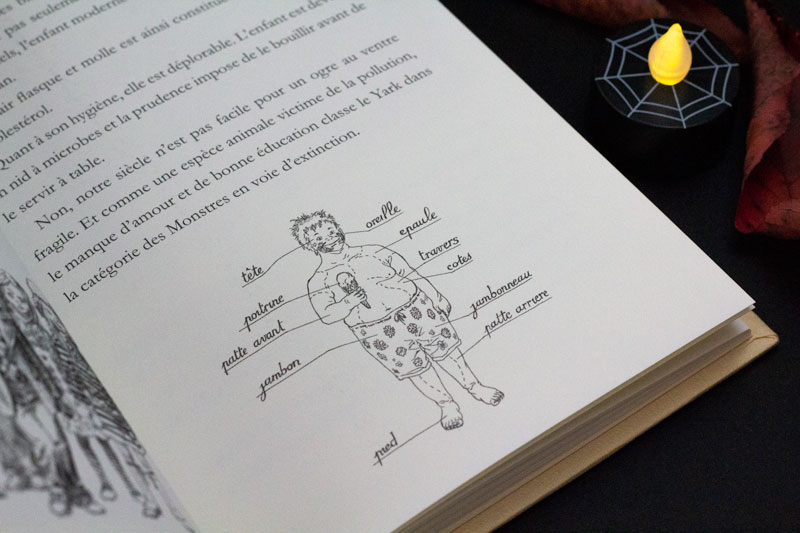 pas seulement
els, l'enfant moderne
an.
air flasque et molle est ainsi constituée
olestérol.
Quant à son hygiène, elle est déplorable. L'enfant est deve
n nid à microbes et la prudence impose de le bouillir avant de
le servir à table.
Non, notre siècle n'est pas facile pour un ogre au ventre
fragile. Et comme une espèce animale victime de la pollution,
le manque d'amour et de bonne éducation classe le Yark dans
la catégorie des Monstres en voie d'extinction.
oreille
épaule
tête
travers
cotes
poitrine
jambonneau
patte avant
patte arriere
jambon
pied